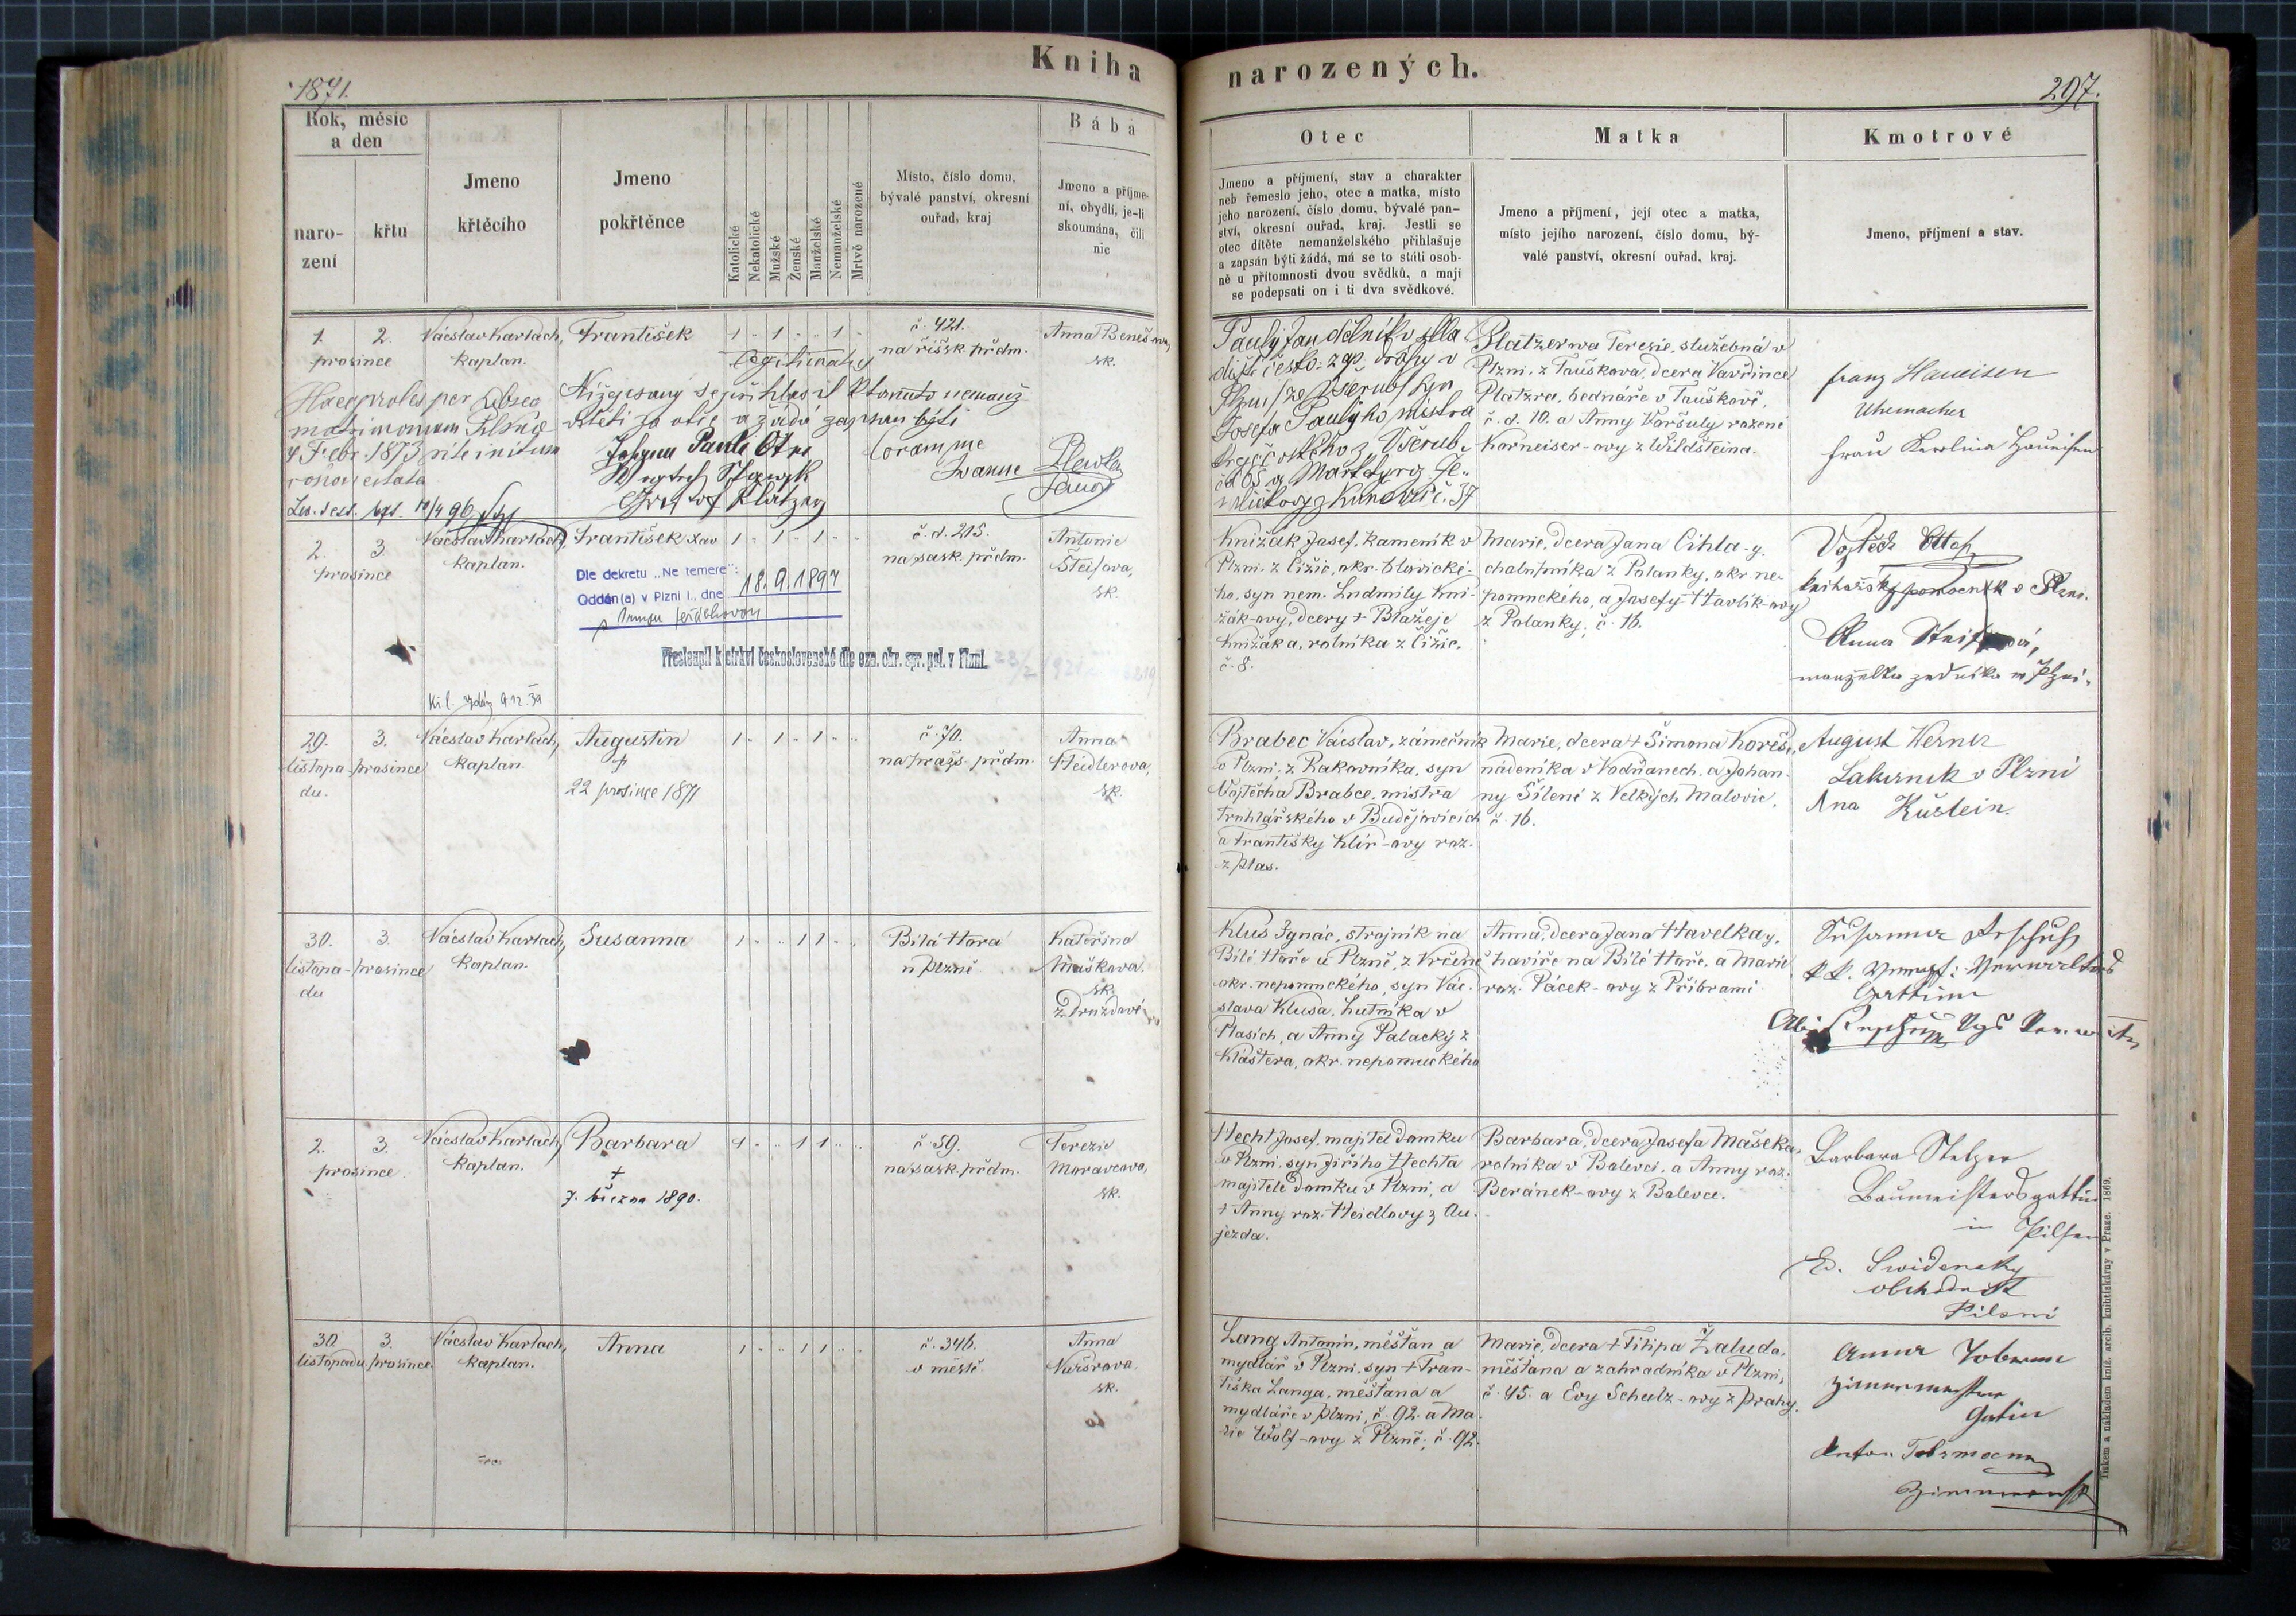 Kniha narozených.
1871.
297.
Rok, měsíc
a den
naro-
zení
křtu
Jmeno
křtěcího
Jmeno
pokřtěnce
Katolické
Nekatolické
Mužské
Ženské
Manželské
Nemanželské
Mrtvě narozené
Místo, číslo domu,
bývalé panství, okresní
ouřad, kraj
Bába
Jmeno a příjme-
ní, obydlí, je-li
skoumána, čili
nic
Otec
Jmeno a příjmení, stav a charakter
neb řemeslo jeho, otec a matka, místo
jeho narození, číslo domu, bývalé pan-
ství, okresní ouřad, kraj. Jestli se
otec dítěte nemanželského přihlašuje
a zapsán býti žádá, má se to státi osob-
ně u přítomnosti dvou svědků, a mají
se podepsati on i ti dva svědkové.
Matka
Jmeno a příjmení, její otec a matka,
místo jejího narození, číslo domu, bý-
valé panství, okresní ouřad, kraj.
Kmotrové
Jmeno, příjmení a stav.
1. 2.
prosince
Václav Karlach,
kaplan.
František
1 " 1 " " 1 "
legitimatus
č. 421.
na říšsk. předm.
Anna Benešova,
sk.
Haec proles per subseq
matrimonium Pilsnae
4 Febr. 1873 rite initum
Nížepsaný se přihlásil k tomuto nemanž
dítěti za otce a žádá zapsán býti
Johann Pauli Otec
coram me
Josefa Paulýho, mistra
Platzerova Terezie, služebná v
Plzni, z Tauškova, dcera Vavřince
Platzra, bednáře v Tauškově,
č. d. 10. a Anny Voršuly rozené
Korneiser-ovy z Wildšteina.
Franz Haueisen
Uhrmacher
Frau Karolina Haueisen
2. 3.
prosince
Václav Karlach,
kaplan.
František Xav
1 " 1 " 1 " "
Dle dekretu „Ne temere":
Oddán(a) v Plzni I., dne 18.9.1897
Přestoupil k církvi československé dle ozn. okr. spr. pol. v Plzni.
Kř. l. vydán 9.12.39
č. d. 215.
na sask. předm.
Antonie
Šteifova,
sk.
Knižák Josef, kameník v
Plzni, z Čižic, okr. blovické-
ho, syn nem. Ludmily Kni-
žák-ovy, dcery + Blažeje
Knižáka, rolníka z Čižic.
č. 8.
Marie, dcera Jana Cihla-y,
chalupníka z Polanky, okr. ne-
pomuckého, a Josefy Havlík-ovy
z Polanky, č. 16.
Vojtěch
knihařský pomocník v Plzni.
Anna
manželka zedníka v Plzni.
29. 3.
listopa- prosince
du.
Václav Karlach,
kaplan.
Augustin
+
22 prosince 1871
1 " 1 " 1 " "
č. 70.
na praž. předm.
Anna
Heidlerova,
sk.
Brabec Václav, zámečník
v Plzni, z Rakovníka, syn
Vojtěcha Brabce, mistra
truhlářského v Budějovicích
a Františky Klír-ovy roz.
z Plas.
Marie, dcera + Šimona Koreš,
nádeníka v Vodňanech, a Johan-
ny Šílené z Velkých Malovic,
č. 16.
August Werner
Lakirnik v Plzni
Ana
30. 3.
listopa- prosince
du
Václav Karlach,
kaplan.
Susanna
1 " " 1 1 " "
Bílá Hora
u Plzně
Kateřina
Maškova,
sk.
Klus Ignác, strojník na
Bílé Hoře u Plzně, z Vrčeně
okr. nepomuckého, syn Vác-
slava Klusa, hutníka v
Plasích, a Anny Palacký z
Kláštera, okr. nepomuckého
Anna, dcera Jana Havelka-y,
havíře na Bílé Hoře, a Marie
roz. Pácek-ovy z Příbrami
Susanna
Gattin
2. 3.
prosince
Václav Karlach,
kaplan.
Barbara
+
7. března 1890.
1 " " 1 1 " "
č. 59.
na sask. předm.
Terezie
Moravcova,
sk.
Hecht Josef, majitel domku
v Plzni, syn Jiřího Hechta
majitele domku v Plzni, a
+ Anny roz. Heidlovy z Au-
jezda.
Barbara, dcera Josefa Mašeka,
rolníka v Bolevci, a Anny roz.
Beránek-ovy z Bolevce.
Barbara Stelzer
Baumeistersgattin
in Pilsen
Ed. Swidensky
obchodník
Pilsni
30 3.
listopadu prosince
Václav Karlach,
kaplan.
Anna
1 " " 1 1 " "
č. 346.
v městě.
Anna
sk.
Lang Antonín, měšťan a
mydlář v Plzni, syn + Fran-
tiška Langa, měšťana a
mydláře v Plzni, č. 92. a Ma-
rie Wolf-ovy z Plzně, č. 92.
Marie, dcera + Filipa Žaluda,
měšťana a zahradníka v Plzni,
č. 45. a Evy Schulz-ovy z Prahy.
Anna
Gatin
Anton
Tiskem a nákladem kníž. arcib. knihtiskárny v Praze. 1869.